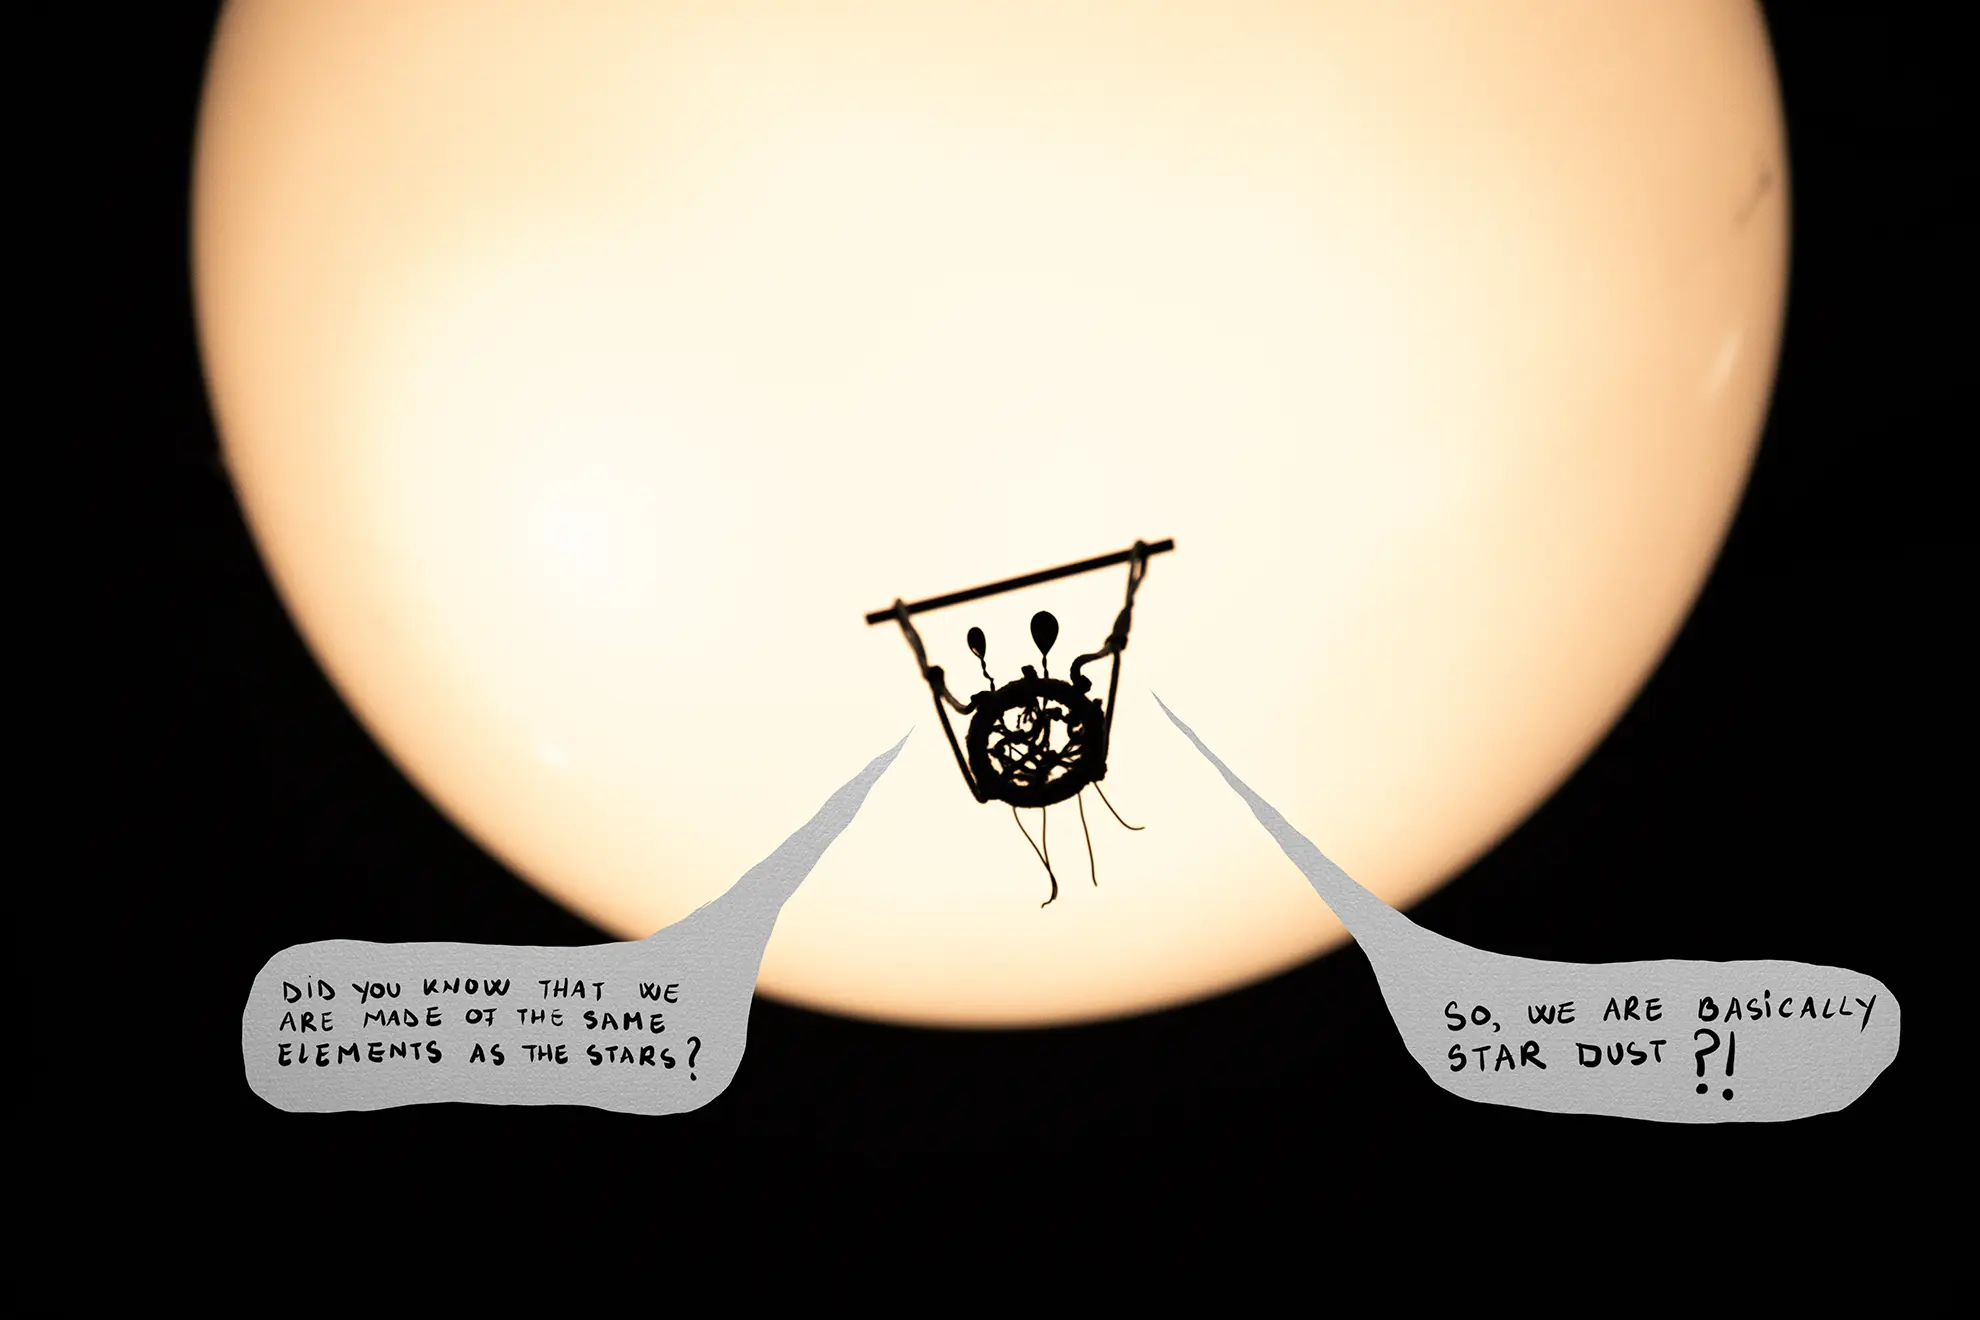 DID YOU KNOW THAT WE
ARE MADE OF THE SAME
ELEMENTS AS THE STARS?
SO, WE ARE BASICALLY
STAR DUST ?!